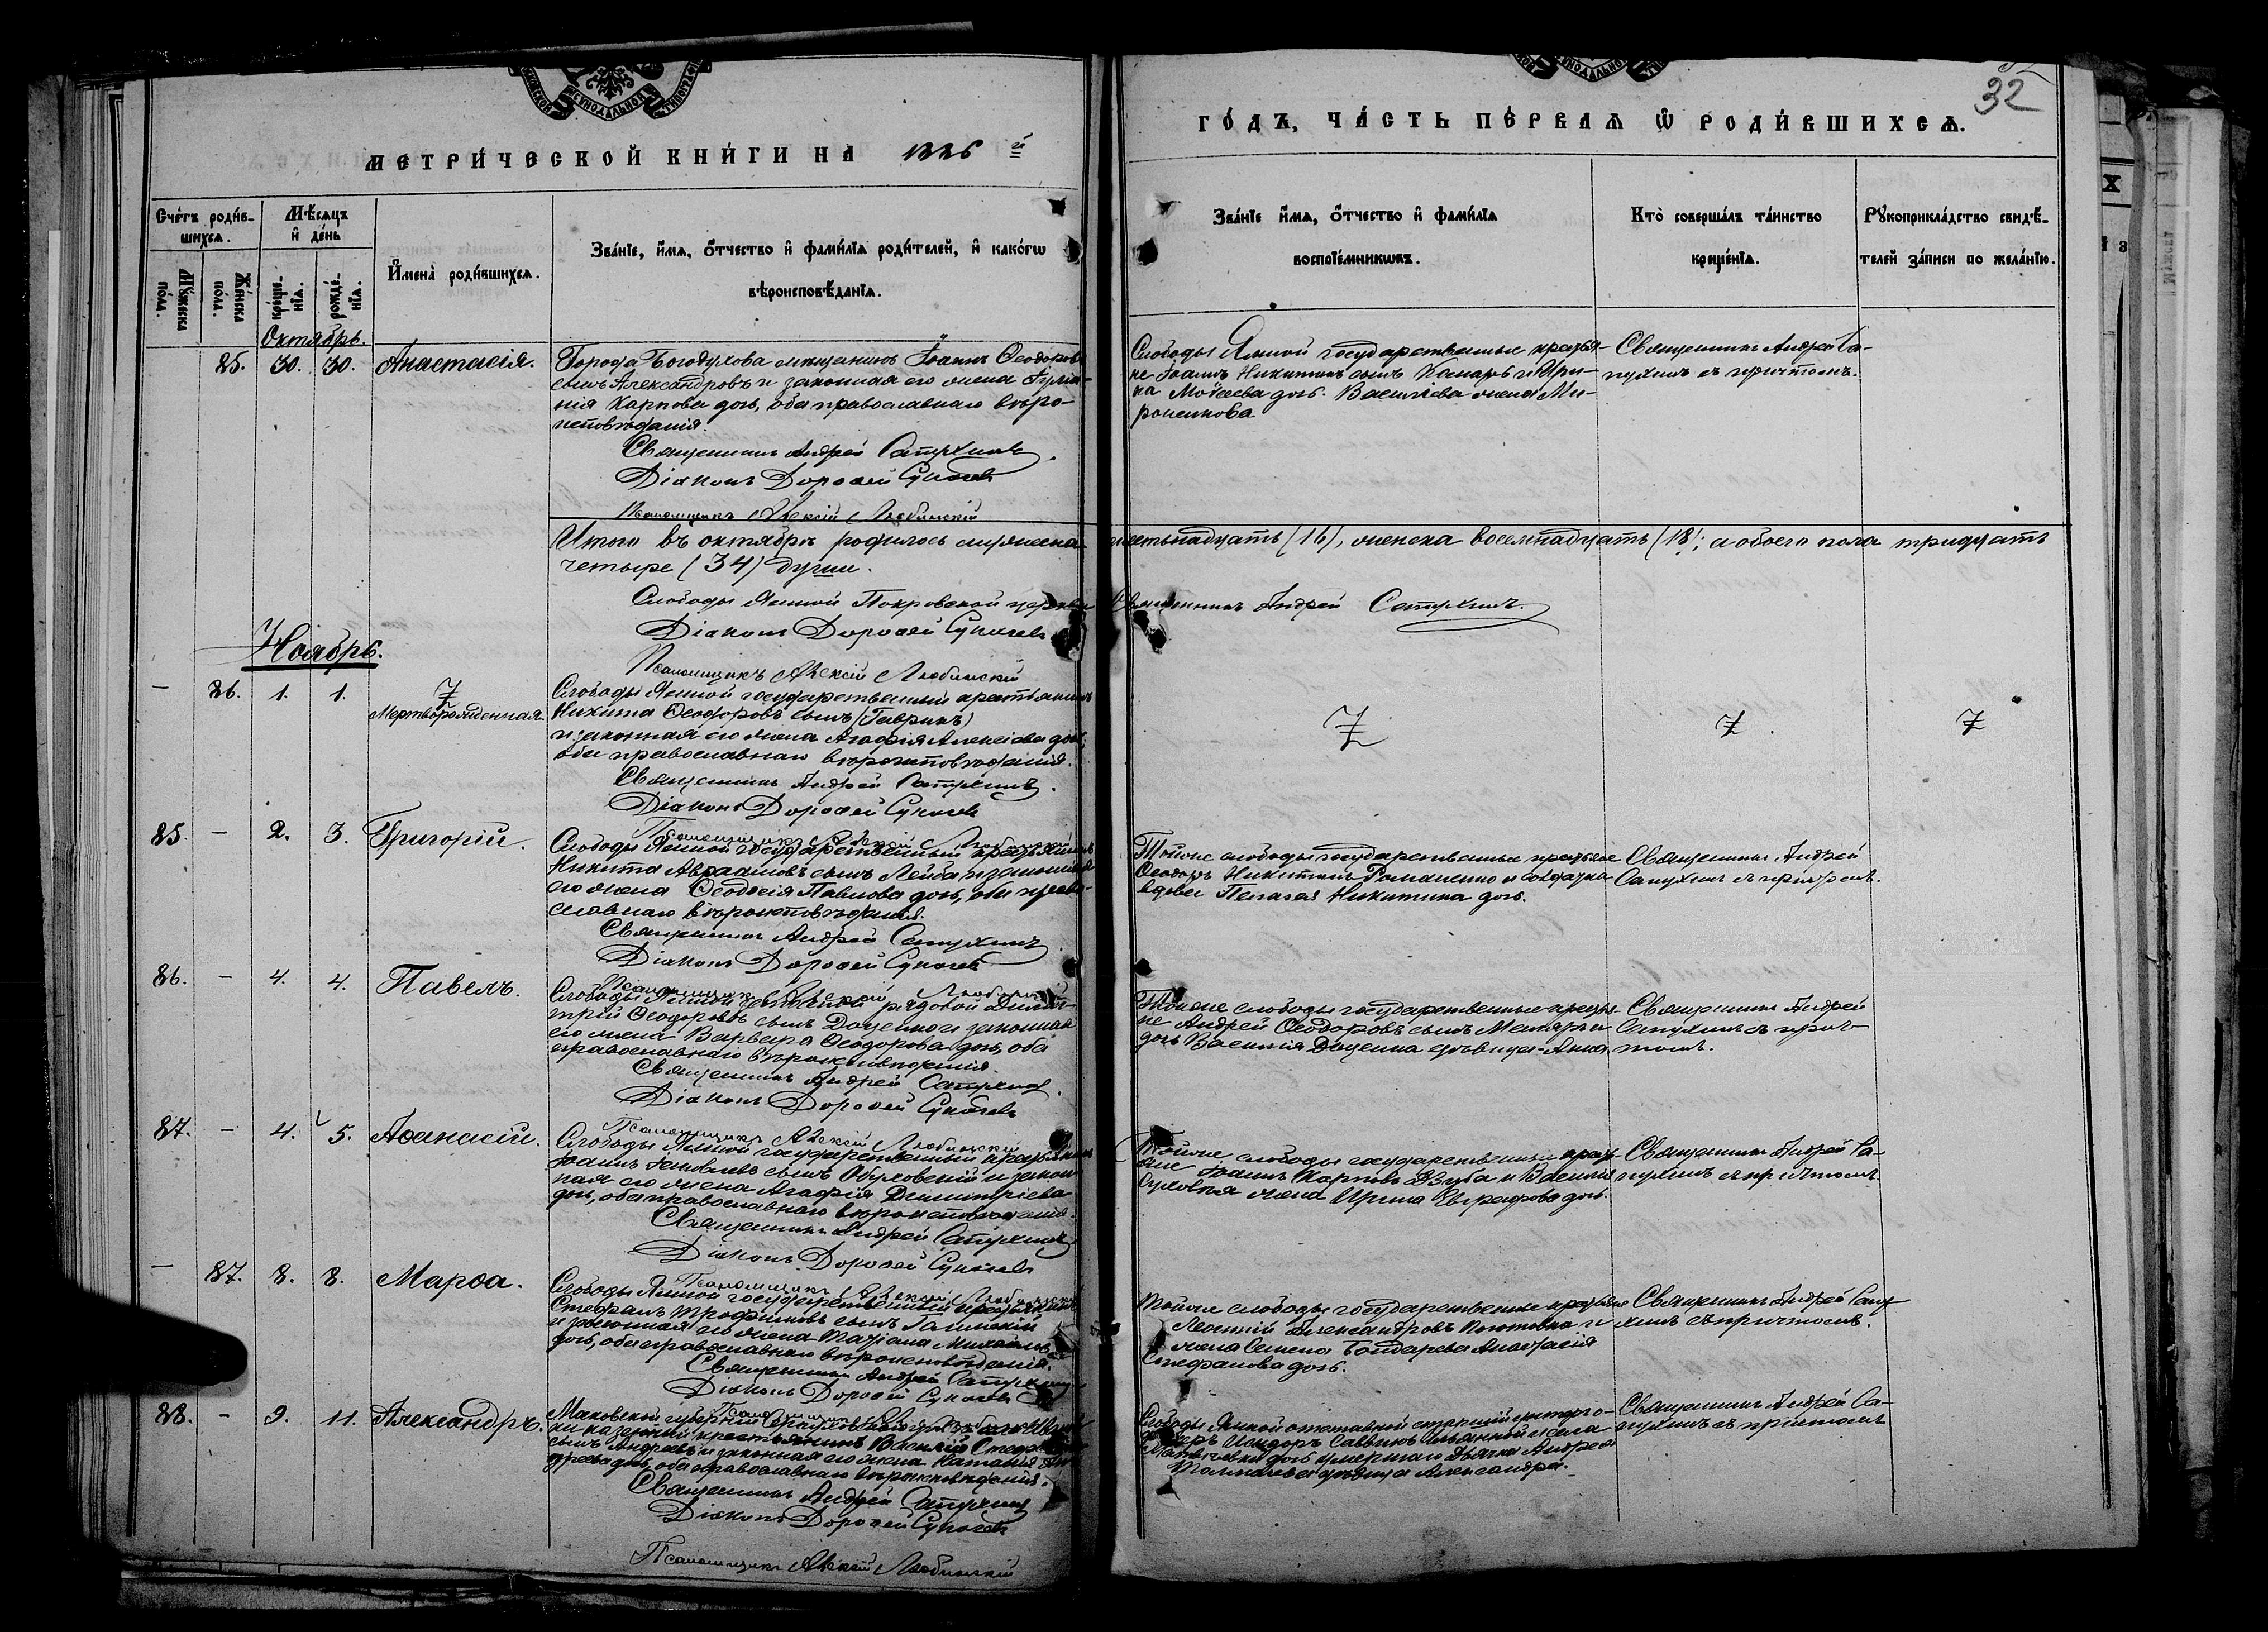 32
МЕТРИ́ЧЕСКОЙ КНИ́ГИ НА 1886 й
ГО́ДЪ, ЧА́СТЬ ПЕ́РВАѦ Ѡ РОДИ́ВШИХСѦ.
Сче́тъ роди́в-
шихсѧ.
Мꙋ́жеска
по́ла.
Же́нска
по́ла.
Мѣ́сѧцъ
и де́нь
креще́-
нїѧ.
рожде́-
нїѧ.
И҆мена̀ роди́вшихсѧ.
Зва́нїе, и҆́мѧ, ѻ҆́тчество и҆ фами́лїѧ роди́телей, и҆ како́гѡ
вѣроисповѣ́данїѧ.
Зва́нїе и҆́мѧ, ѻ҆́тчество и҆ фами́лїѧ
воспрїе́мникѡвъ.
Кто̀ соверша́лъ та́инство
креще́нїѧ.
Рꙋкоприкла́дство свидѣ́-
телей за́писи по жела́нїю.
Октябрь.
85. 30. 30. Анастасія.
Города Богодухова мѣщанинъ Іоаннъ Ѳеодоровъ
сынъ Александровъ и законная его жена Іулiа-
нія Карпова дочь, оба православнаго вѣро-
исповѣданія.
Священникъ Андрей Сапухинъ
Діаконъ Дороѳей Сукачевъ
Псаломщикъ Алексій Любинскій
Слободы Ямной государственные крестья-
не Іоаннъ Никитинъ сынъ и Ири-
на Моѵсеева дочь. Василіева жена Ми-
роненкова.
Священникъ Андрей Са-
пухинъ съ причтомъ.
Итого въ октябрѣ родилось мужеска шестьнадцать (16), женска восемнадцать (18); а обоего пола тридцать
четыре (34) души.
Слободы Ямной Покровской церкви Священникъ Андрей Сапухинъ.
Діаконъ Дороѳей Сукачевъ
Псаломщикъ Алексій Любинскій
Ноябрь.
— 86. 1. 1. Мертворожденная.
Слободы Ямной государственный крестьянинъ
Никита Ѳеодоровъ сынъ (Гавришъ)
и законная его жена Агафія Алексіева дочь,
оба православнаго вѣроисповѣданія.
Священникъ Андрей Сапухинъ
Діаконъ Дороѳей Сукачевъ
Псаломщикъ Алексій Любинскій
85. — 2. 3. Григорій.
Слободы Ямной государственный крестьянинъ
Никита Авраамовъ сынъ и законная
его жена Ѳеодосія Павлова дочь, оба право-
славнаго вѣроисповѣданія.
Священникъ Андрей Сапухинъ
Діаконъ Дороѳей Сукачевъ
Псаломщикъ Алексій Любинскій
Тойже слободы государственные крестьяне
Ѳеодоръ Никитинъ Романенко и солдатка
вдова Пелагея Никитина дочь.
Священникъ Андрей
Сапухинъ съ причтомъ.
86. — 4. 4. Павелъ.
Слободы Ямной рядовой Дими-
трій Ѳеодоровъ сынъ Доценко и законная
его жена Варвара Ѳеодорова дочь, оба
православнаго вѣроисповѣданія.
Священникъ Андрей Сапухинъ
Діаконъ Дороѳей Сукачевъ
Псаломщикъ Алексій Любинскій
Тойже слободы государственные крестья-
не Андрей Ѳеодоровъ сынъ и
дочь Василія Доценка дѣвица Анна.
Священникъ Андрей
Сапухинъ съ прич-
томъ.
87. — 4. 5. Аѳанасій.
Слободы Ямной государственный крестьянинъ
Іоаннъ Іаковлевъ сынъ Обуховскій и закон-
ная его жена Агафія Димитріева
дочь, оба православнаго вѣроисповѣданія.
Священникъ Андрей Сапухинъ
Діаконъ Дороѳей Сукачевъ
Псаломщикъ Алексій Любинскій
Тойже слободы государственные кресть-
яне Іоаннъ Карповъ Зуба и Василія
жена Ирина дочь.
Священникъ Андрей Са-
пухинъ съ причтомъ.
— 87. 8. 8. Марѳа.
Слободы Ямной государственный крестьянинъ
Стефанъ Трофимовъ сынъ
и законная его жена Татіана Михаилова
дочь, оба православнаго вѣроисповѣданія.
Священникъ Андрей Сапухинъ
Діаконъ Дороѳей Сукачевъ
Псаломщикъ Алексій Любинскій
Тойже слободы государственные крестьяне
Александровъ и
жена Семена Бондарева Анастасія
Стефанова дочь.
Священникъ Андрей Сапу-
хинъ съ причтомъ.
88. — 9. 11. Александръ.
Московской губерніи
крестьянинъ Василій
сынъ Андреевъ и законная его жена Наталія
дочь, оба православнаго вѣроисповѣданія.
Священникъ Андрей Сапухинъ
Діаконъ Дороѳей Сукачевъ
Псаломщикъ Алексій Любинскій
Слободы Ямной отставной старшій унтеръ-о-
фицеръ Исидоръ Саввинъ и села
дочь умершаго дьячка Андрея
дѣвица Александра.
Священникъ Андрей Са-
пухинъ съ причтомъ.